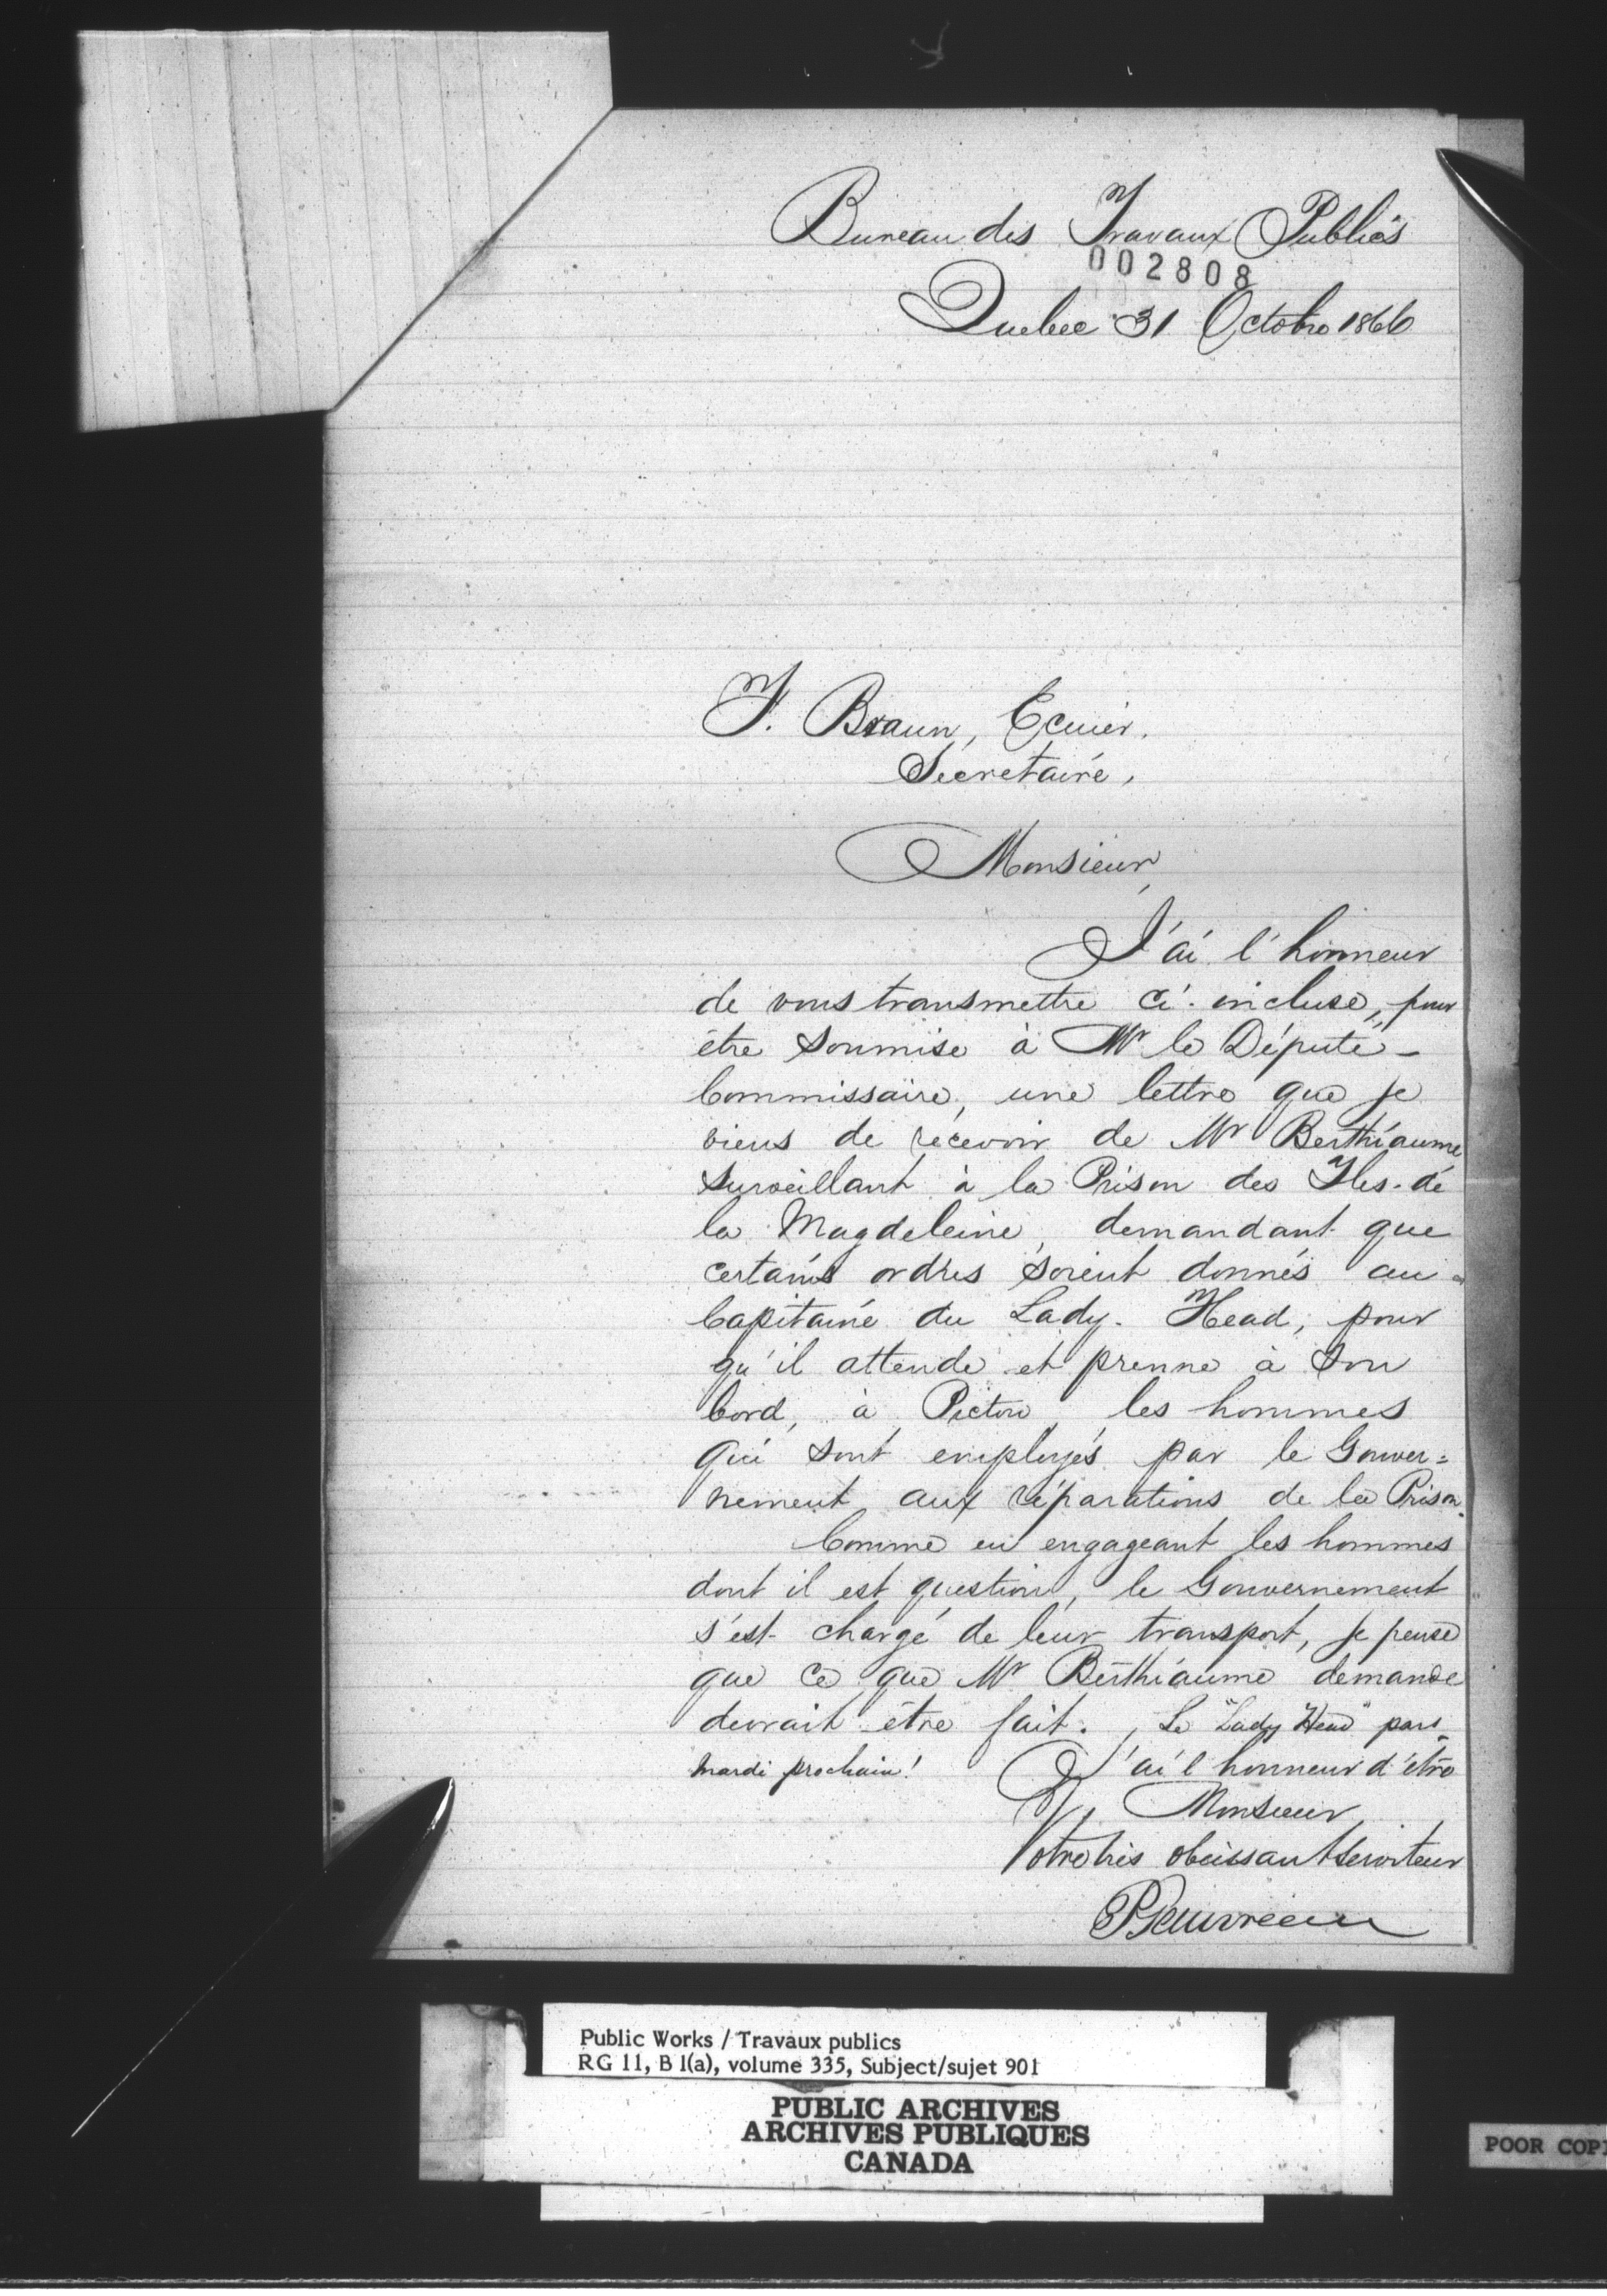 Bureau des Travaux Publics
002808
Quebec 31 Octobre 1866
F. Braun, Ecuier.
Secretaire,
Monsieur,
J'ai l'honneur
de vous transmettre ci-incluse, pour
être soumise à Mr le Député-
Commissaire, une lettre que je
viens de recevoir de Mr Berthiaume
Surveillant à la Prison des Iles-de
la Magdeleine, demandant que
certains ordres soient donnés au
Capitaine du Lady-Head, pour
qu'il attende et prenne à son
bord, à Pictou, les hommes
qui sont employés par le Gouver=
nement aux réparations de la Prison.
Comme en engageant les hommes
dont il est question, le Gouvernement
s'est chargé de leur transport, je pense
que ce que Mr Berthiaume demande
devrait être fait. Le "Lady Head" part
mardi prochain! J'ai l'honneur d'être
Monsieur,
Votre très obéissant Serviteur
Public Works / Travaux publics
RG 11, B 1(a), volume 335, Subject/sujet 901
PUBLIC ARCHIVES
ARCHIVES PUBLIQUES
CANADA
POOR COPY